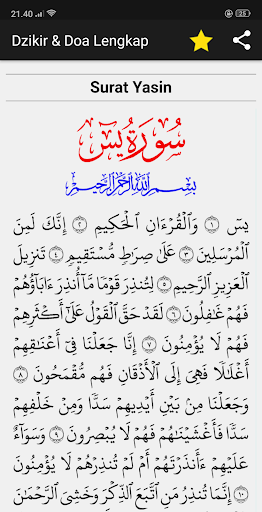 21.40
25
Dzikir & Doa Lengkap
Surat Yasin
سُورَةُ يسٓ
بِسْمِ اللَّهِ الرَّحْمَٰنِ الرَّحِيمِ
يسٓ ١ وَالْقُرْءَانِ الْحَكِيمِ ٢ إِنَّكَ لَمِنَ
الْمُرْسَلِينَ ٣ عَلَىٰ صِرَاطٍ مُّسْتَقِيمٍ ٤ تَنزِيلَ
الْعَزِيزِ الرَّحِيمِ ٥ لِتُنذِرَ قَوْمًا مَّآ أُنذِرَ ءَابَآؤُهُمْ
فَهُمْ غَٰفِلُونَ ٦ لَقَدْ حَقَّ الْقَوْلُ عَلَىٰٓ أَكْثَرِهِمْ
فَهُمْ لَا يُؤْمِنُونَ ٧ إِنَّا جَعَلْنَا فِىٓ أَعْنَٰقِهِمْ
أَغْلَٰلًا فَهِىَ إِلَى الْأَذْقَانِ فَهُم مُّقْمَحُونَ ٨
وَجَعَلْنَا مِنۢ بَيْنِ أَيْدِيهِمْ سَدًّا وَمِنْ خَلْفِهِمْ
سَدًّا فَأَغْشَيْنَٰهُمْ فَهُمْ لَا يُبْصِرُونَ ٩ وَسَوَآءٌ
عَلَيْهِمْ ءَأَنذَرْتَهُمْ أَمْ لَمْ تُنذِرْهُمْ لَا يُؤْمِنُونَ
١٠ إِنَّمَا تُنذِرُ مَنِ اتَّبَعَ الذِّكْرَ وَخَشِىَ الرَّحْمَٰنَ